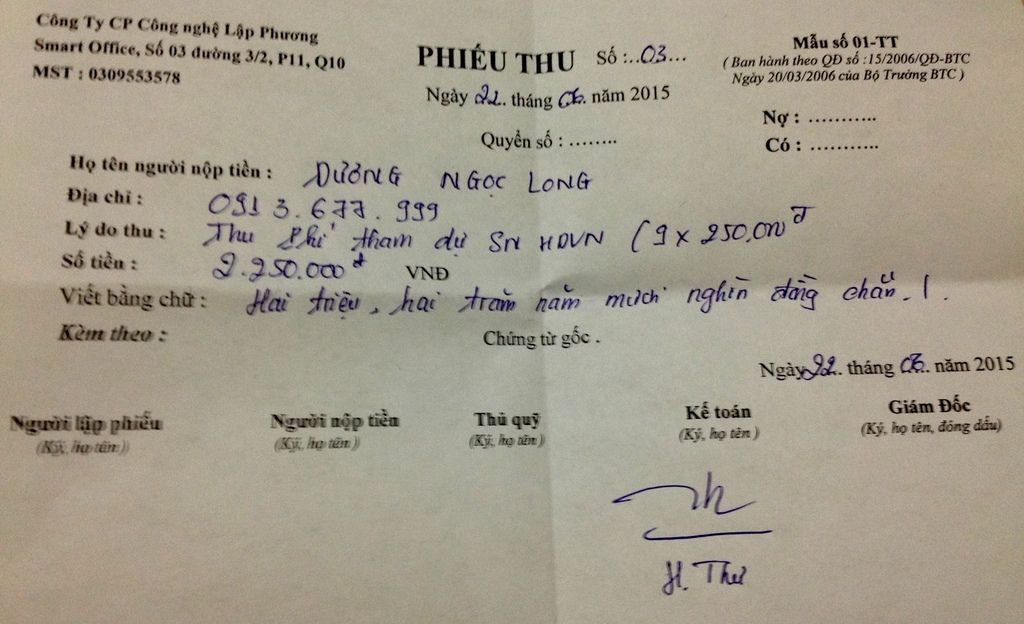 Công Ty CP Công nghệ Lập Phương
Smart Office, Số 03 đường 3/2, P11, Q10
MST : 0309553578
PHIẾU THU Số :..03...
Ngày 22. tháng 06. năm 2015
Quyển số : ........
Mẫu số 01-TT
( Ban hành theo QĐ số :15/2006/QĐ-BTC
Ngày 20/03/2006 của Bộ Trưởng BTC )
Nợ : ...........
Có : ...........
Họ tên người nộp tiền : DƯƠNG NGỌC LONG
Địa chỉ : 0913.677.999
Lý do thu : Thu Phí tham dự SN HDVN ( 9 x 250.000đ
Số tiền : 2.250.000đ VNĐ
Viết bằng chữ : Hai triệu, hai trăm năm mươi nghìn đồng chẵn./.
Kèm theo : Chứng từ gốc .
Ngày 22. tháng 06. năm 2015
Người lập phiếu Người nộp tiền Thủ quỹ Kế toán Giám Đốc
(Ký, họ tên ) (Ký, họ tên ) (Ký, họ tên ) (Ký, họ tên ) (Ký, họ tên, đóng dấu)
H. Thư